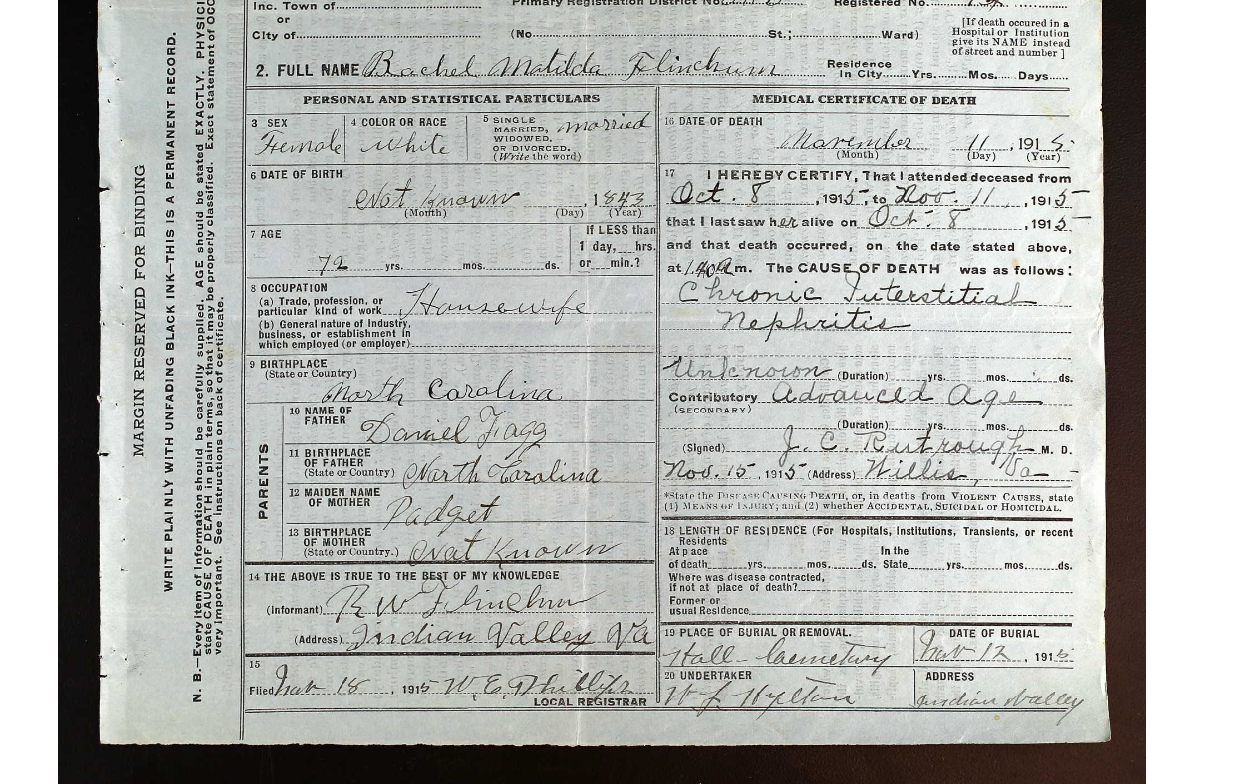 Inc. Town of
Primary Registration District No.
Registered No.
or
City of
(No. St.; Ward)
[If death occured in a
Hospital or Institution
give its NAME instead
of street and number]
2. FULL NAME Rachel Matilda Flinchum
Residence
In City Yrs. Mos. Days
MARGIN RESERVED FOR BINDING
WRITE PLAINLY WITH UNFADING BLACK INK—THIS IS A PERMANENT RECORD.
N. B.—Every item of information should be carefully supplied. AGE should be stated EXACTLY. PHYSICI
state CAUSE OF DEATH in plain terms, so that it may be properly classified. Exact statement of OCC
very important. See instructions on back of certificate.
PERSONAL AND STATISTICAL PARTICULARS
3 SEX
Female
4 COLOR OR RACE
White
5 SINGLE
MARRIED,
WIDOWED,
OR DIVORCED.
(Write the word)
married
6 DATE OF BIRTH
Not Known, 1843
(Month) (Day) (Year)
7 AGE
72 yrs. mos. ds.
If LESS than
1 day, hrs.
or min.?
8 OCCUPATION
(a) Trade, profession, or
particular kind of work Housewife
(b) General nature of Industry,
business, or establishment in
which employed (or employer)
9 BIRTHPLACE
(State or Country)
North Carolina
PARENTS
10 NAME OF
FATHER
Daniel Fagg
11 BIRTHPLACE
OF FATHER
(State or Country) North Carolina
12 MAIDEN NAME
OF MOTHER
Padget
13 BIRTHPLACE
OF MOTHER
(State or Country.) Not Known
14 THE ABOVE IS TRUE TO THE BEST OF MY KNOWLEDGE
(Informant) R W Flinchum
(Address) Indian Valley Va
15
Filed Nov 18, 1915 W. E. Phillips
LOCAL REGISTRAR
MEDICAL CERTIFICATE OF DEATH
16 DATE OF DEATH
November 11, 1915.
(Month) (Day) (Year)
17 I HEREBY CERTIFY, That I attended deceased from
Oct. 8, 1915, to Nov. 11, 1915
that I last saw her alive on Oct. 8, 1915
and that death occurred, on the date stated above,
at m. The CAUSE OF DEATH was as follows:
Chronic Interstitial
Nephritis
Unknown (Duration) yrs. mos. ds.
Contributory Advanced Age
(SECONDARY)
(Duration) yrs. mos. ds.
(Signed) J. C. Rutrough M. D.
Nov. 15, 1915 (Address) Willis, Va
*State the DISEASE CAUSING DEATH, or, in deaths from VIOLENT CAUSES, state
(1) MEANS OF INJURY; and (2) whether ACCIDENTAL, SUICIDAL OR HOMICIDAL.
18 LENGTH OF RESIDENCE (For Hospitals, Institutions, Transients, or recent
Residents
At place In the
of death yrs. mos. ds. State yrs. mos. ds.
Where was disease contracted,
if not at place of death?
Former or
usual Residence
19 PLACE OF BURIAL OR REMOVAL.
Hall Caemetary
DATE OF BURIAL
Nov 12, 1915
20 UNDERTAKER
W J Hylton
ADDRESS
Indian Valley